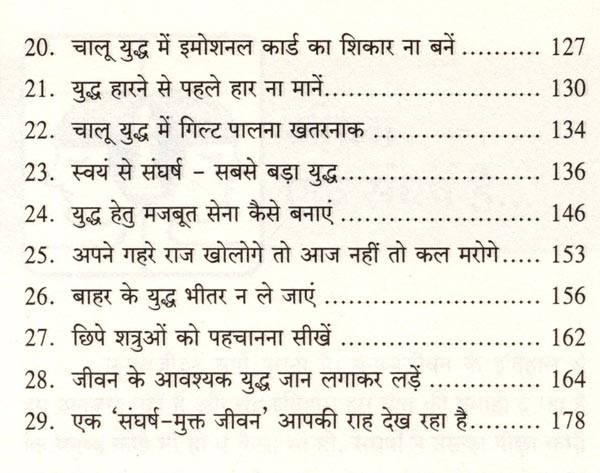 20. चालू युद्ध में इमोशनल कार्ड का शिकार ना बनें .......... 127
21. युद्ध हारने से पहले हार ना मानें........................... 130
22. चालू युद्ध में गिल्ट पालना खतरनाक ...................... 134
23. स्वयं से संघर्ष - सबसे बड़ा युद्ध......................... 136
24. युद्ध हेतु मजबूत सेना कैसे बनाएं ......................... 146
25. अपने गहरे राज खोलोगे तो आज नहीं तो कल मरोगे..... 153
26. बाहर के युद्ध भीतर न ले जाएं ........................... 156
27. छिपे शत्रुओं को पहचानना सीखें ......................... 162
28. जीवन के आवश्यक युद्ध जान लगाकर लड़ें ............... 164
29. एक ‘संघर्ष-मुक्त जीवन’ आपकी राह देख रहा है......... 178